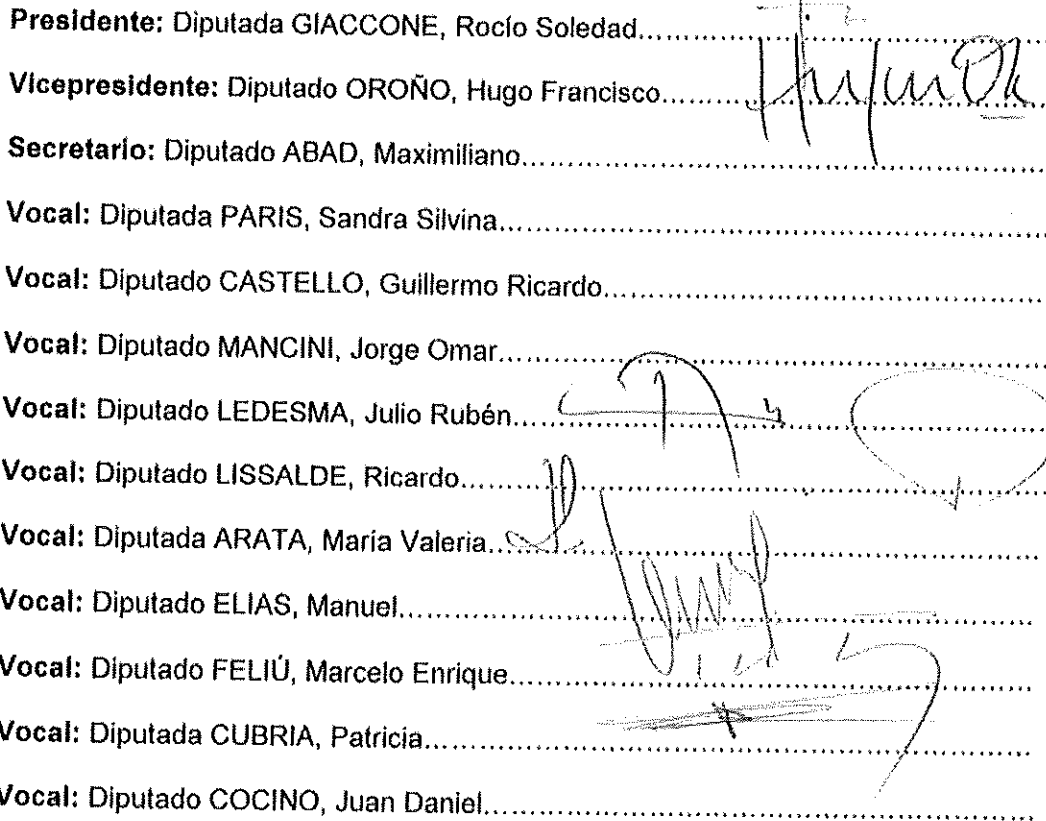 Presidente: Diputada GIACCONE, Rocío Soledad
Vicepresidente: Diputado OROÑO, Hugo Francisco
Secretario: Diputado ABAD, Maximiliano
Vocal: Diputada PARIS, Sandra Silvina
Vocal: Diputado CASTELLO, Guillermo Ricardo
Vocal: Diputado MANCINI, Jorge Omar
Vocal: Diputado LEDESMA, Julio Rubén
Vocal: Diputado LISSALDE, Ricardo
Vocal: Diputada ARATA, María Valeria
Vocal: Diputado ELIAS, Manuel
Vocal: Diputado FELIÚ, Marcelo Enrique
Vocal: Diputada CUBRIA, Patricia
Vocal: Diputado COCINO, Juan Daniel